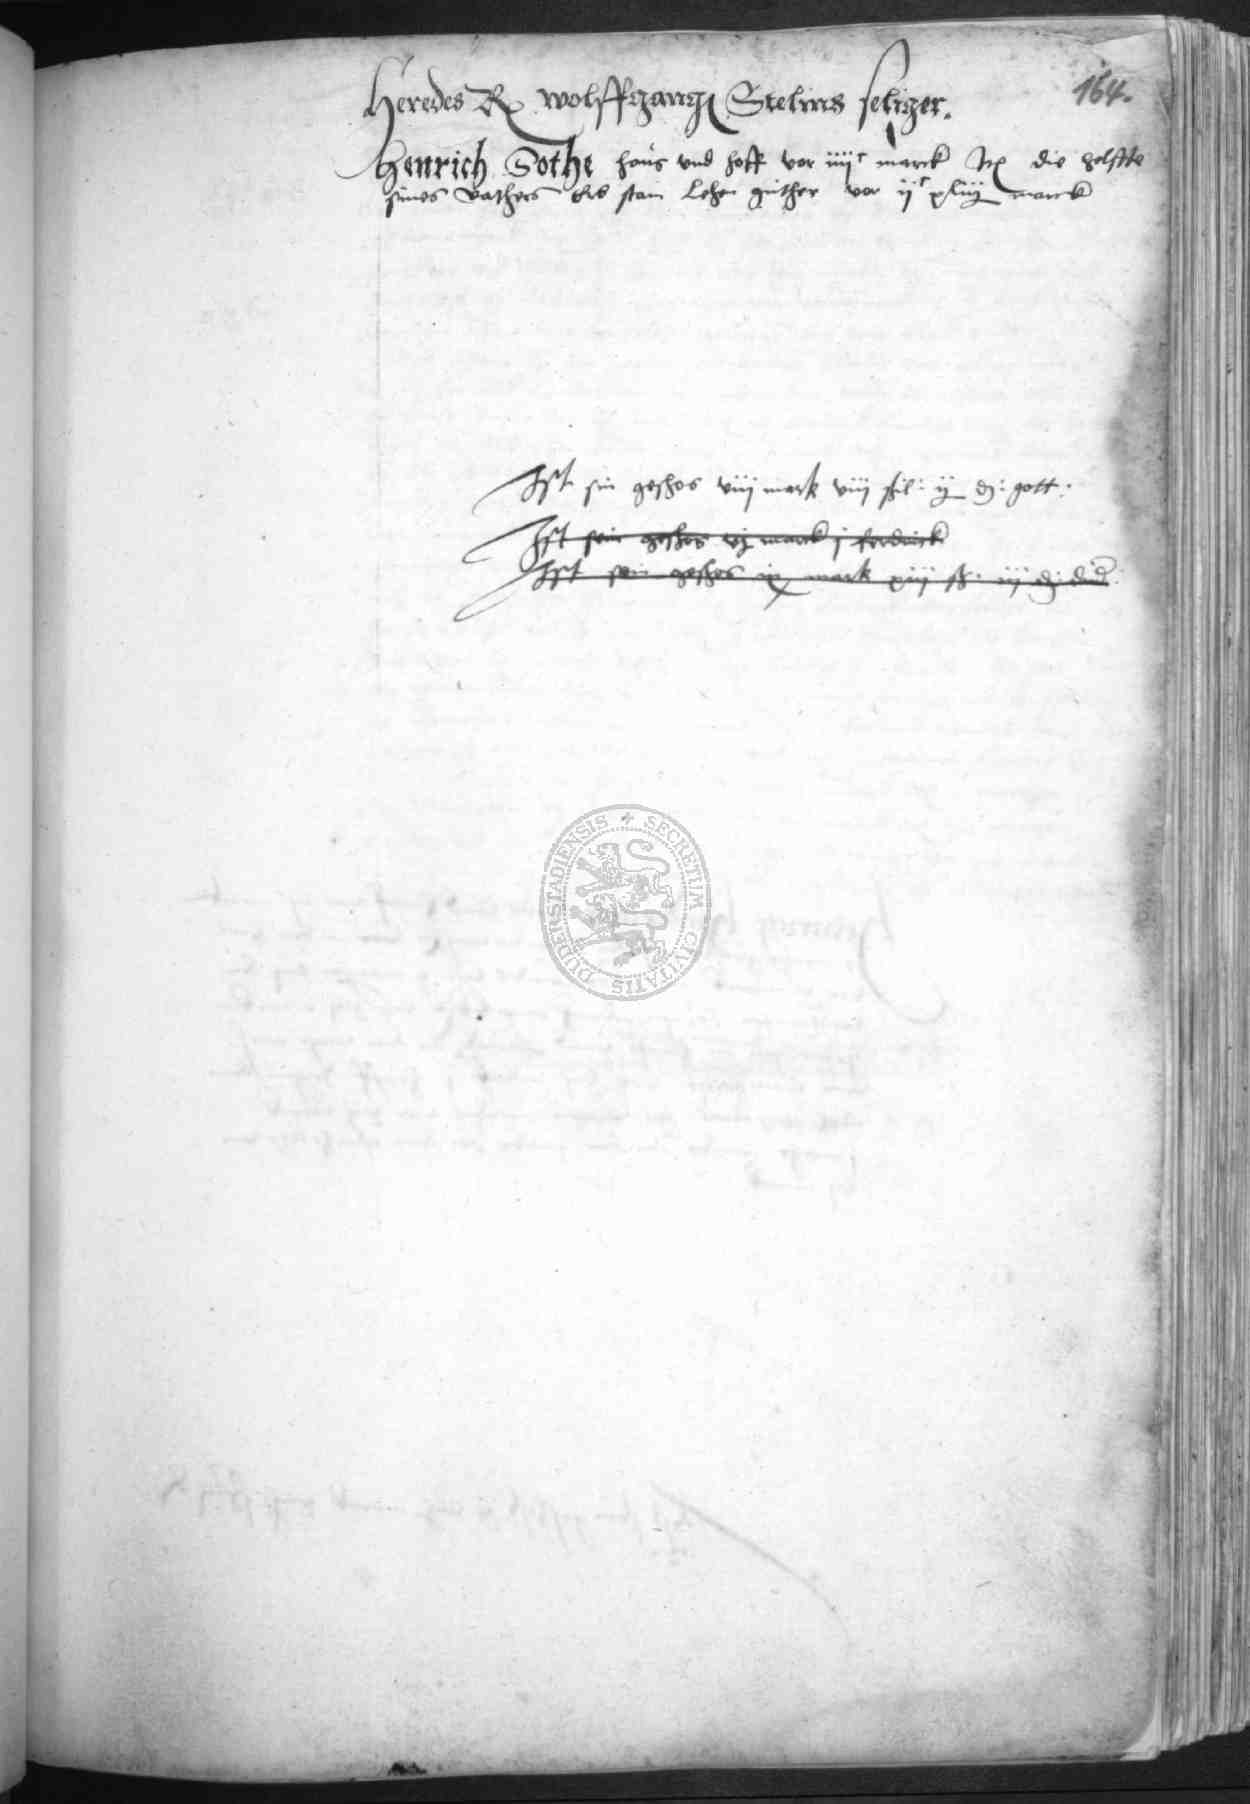 164.
Heredes R Wolffgangi Stelins seliger.
Henrich Sothe haus vnd hoff vor iiii c marck It die helfte
sines vathers erb stam lehen guther vor ii c xliij marck
Ist sin geschos viij mark viij ſchil: ij d: gott:
Ist sein geschos vj marck j ferdinck
Ist sein geschos ix mark xiij sch: iij d:
SECRETUM CIVITATIS DUDERSTADIENSIS